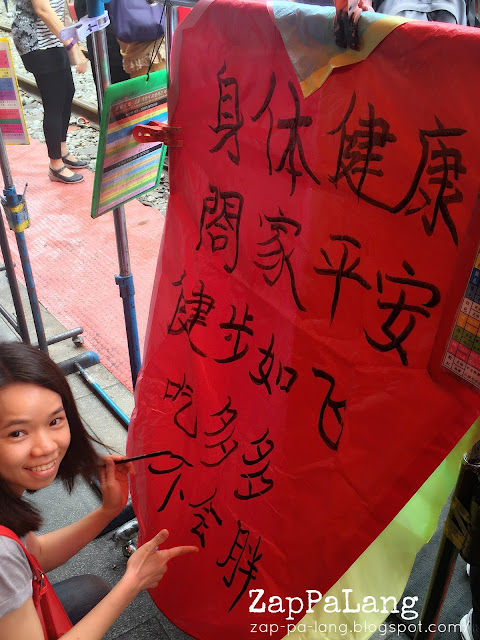 身体健康
閤家平安
健步如飞
吃多多
不会胖
ZapPaLang
zap-pa-lang.blogspot.com